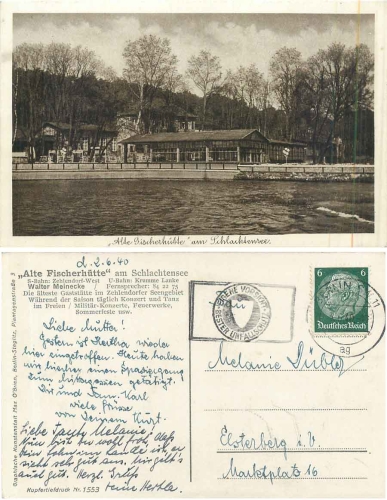 „Alte Fischerhütte" am Schlachtensee.
d. 2.6.40
„Alte Fischerhütte" am Schlachtensee
S-Bahn: Zehlendorf-West U-Bahn: Krumme Lanke
Walter Meinecke / Fernsprecher: 84 22 75
Die älteste Gaststätte im Zehlendorfer Seengebiet
Während der Saison täglich Konzert und Tanz
im Freien / Militär-Konzerte, Feuerwerke,
Sommerfeste usw.
Liebe Mutter!
Gestern ist Hertha wieder
hier eingetroffen. Heute haben
wir hierher einen Spaziergang
zum
getätigt.
Dir und Jum Karl
viele Grüße
von Deinem Kurt.
Liebe Tante Melanie!
Nun bist du wohl froh, daß
dein Sohn im Lande ist, er
sieht sehr gut aus, mir geht's
auch gut. Herzl. Grüße
Deine Hertha
Kupfertiefdruck Nr. 1553
Graphische Kunstanstalt Max O'Brien, Berlin-Steglitz,
6 6
Deutsches Reich
Melanie
Elsterberg i. V.
Marktplatz 16